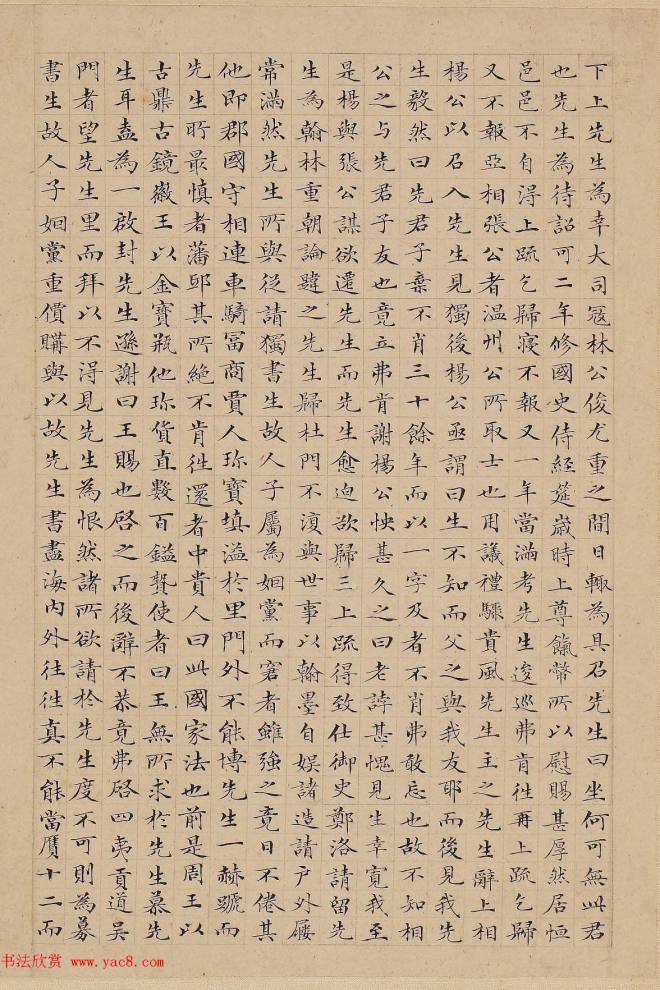 下上先生為幸大司寇林公俊尤重之間日輙為具召先生曰坐何可無此君
也先生為待詔可二年修國史侍經筵歲時上尊餼幣所以慰賜甚厚然居恒
邑邑不自得上疏乞歸寢不報又一年當滿考先生逡巡弗肯徃再上疏乞歸
又不報亞相張公者溫州公所取士也用議禮驟貴風先生主之先生辭上相
楊公以召入先生見獨後楊公亟謂曰生不知而父之與我友耶而後見我先
生毅然曰先君子棄不肖三十餘年而以一字及者不肖弗敢忘也故不知相
公之与先君子友也竟立弗肯謝楊公怏甚久之曰老誖甚愧見生幸寬我至
是楊與張公謀欲遷先生而先生愈迫欲歸三上疏得致仕御史鄭洛請留先
生為翰林重朝論韙之先生歸杜門不復與世事以翰墨自娛諸造請户外屨
常滿然先生所與從請獨書生故人子屬為姻黨而窘者雖強之竟日不倦其
他即郡國守相連車騎冨商賈人珎寶填溢於里門外不能博先生一赫蹏而
先生所最慎者藩邸其所絕不肯徃還者中貴人曰此國家法也前是周王以
古鼎古鏡徽王以金寶瓶他珎貨直數百鎰贄使者曰王無所求於先生慕先
生耳盍為一啟封先生遜謝曰王賜也啓之而後辭不恭竟弗啓四夷貢道吳
門者望先生里而拜以不得見先生為恨然諸所欲請於先生度不可則為募
書生故人子姻黨重價購與以故先生書盡海內外往徃真不能當贗十二而
书法欣赏 www.yac8.com